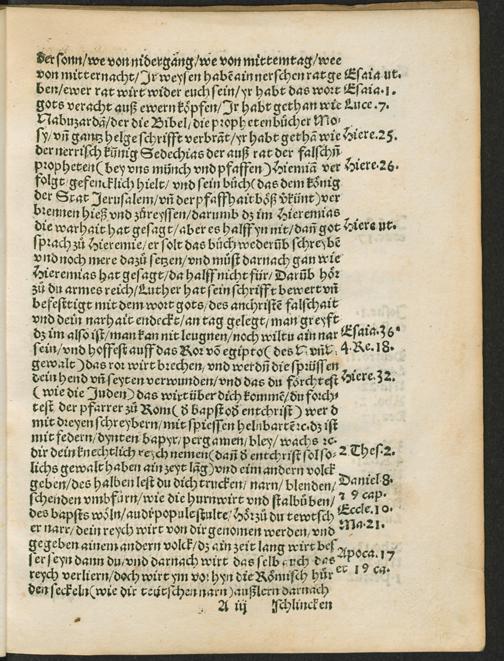 der sonn/we von nidergãng/we von mittemtag/wee
von mitternacht/Jr weysen habẽ ain nerschen rat ge Esaia ut.
ben/ewer rat wirt wider euch sein/yr habt das wort Esaia.1.
gots veracht auß ewern kôpfen/Jr habt gethan wie Luce.7.
Nabuzardã/der die Bibel/die prophetenbücher Mo⸗
sy/vñ gantz helge schrifft verbrãt/yr habt gethã wie Hiere.25.
der nerrisch künig Sedechias der auß rat der falschñ
propheten(bey vns münch vnd pfaffen)Hiemiã ver Hiere.26.
folgt/gefencklich hielt/vnd sein bůch(das dem kônig
der Stat Jerusalem/vñ der pfaffhait bôß v̈künt)ver
brennen hieß vnd zůreyssen/darumb dz im Hieremias
die warhait hat gesagt/aber es halff yn nit/dañ got Hiere ut.
sprach zů Hieremie/er solt das bůch wederüb schreybẽ
vnd noch mere dazů setzen/vnd můst darnach gan wie
Hieremias hat gesagt/da halff nicht für/Darüb hôr
zů du armes reich/Luther hat sein schrifft bewert vñ
befestitigt mit dem wort gots/des anchristẽ falschait
vnd dein narhait endeckt/an tag gelegt/man greyft
dz im also ist/man kan nit leugnen/noch wiltu ain nar Esaia.36.
sein/vnd hoffest auff das Ror võ egipto(des 4.Re.18.
gewalt)das ror wirt brechen/vnd werdñ die sprüssen
dein hend vñ seyten verwunden/vnd das du fôrchtest Hiere.32.
(wie die Juden)das wirt über dich kommẽ/du fôrch⸗
test der pfarrer zů Rom(d̈ bapst od̈ entchrist)werd
mit dreyen schreybern/mit spiessen helnbartẽ ⁊c.dz ist
mit federn/dynten bapyr/pergamen/bley/wachs ⁊c.
dir dein knechtlich reych nemen(dañ d̈ entchrist sol so⸗ 2 Thes.2.
lichs gewalt haben ain zeyt lãg)vnd eim andern volck
geben/des halben lest du dich trucken/narn/blenden/ Daniel.8.
schenden vmbfürn/wie die hurnwirt vnd stalbůben/ ⁊ 9 cap.
des bapsts wôln/audi popule stulte/Hôr zů du tewtsch Eccle.10.
er narr/dein reych wirt von dir genomen werden/vnd Ma.21.
gegeben ainem andern volck/dz ain zeit lang wirt bes
ser seyn dann du/vnd darnach wirt das selb auch das Apoca.17
reych verliern/doch wirt ym vorhyn die Rômisch hůr et 19 ca.
den seckeln(wie dir teutschen narn)außlern darnach
A iij schlincken